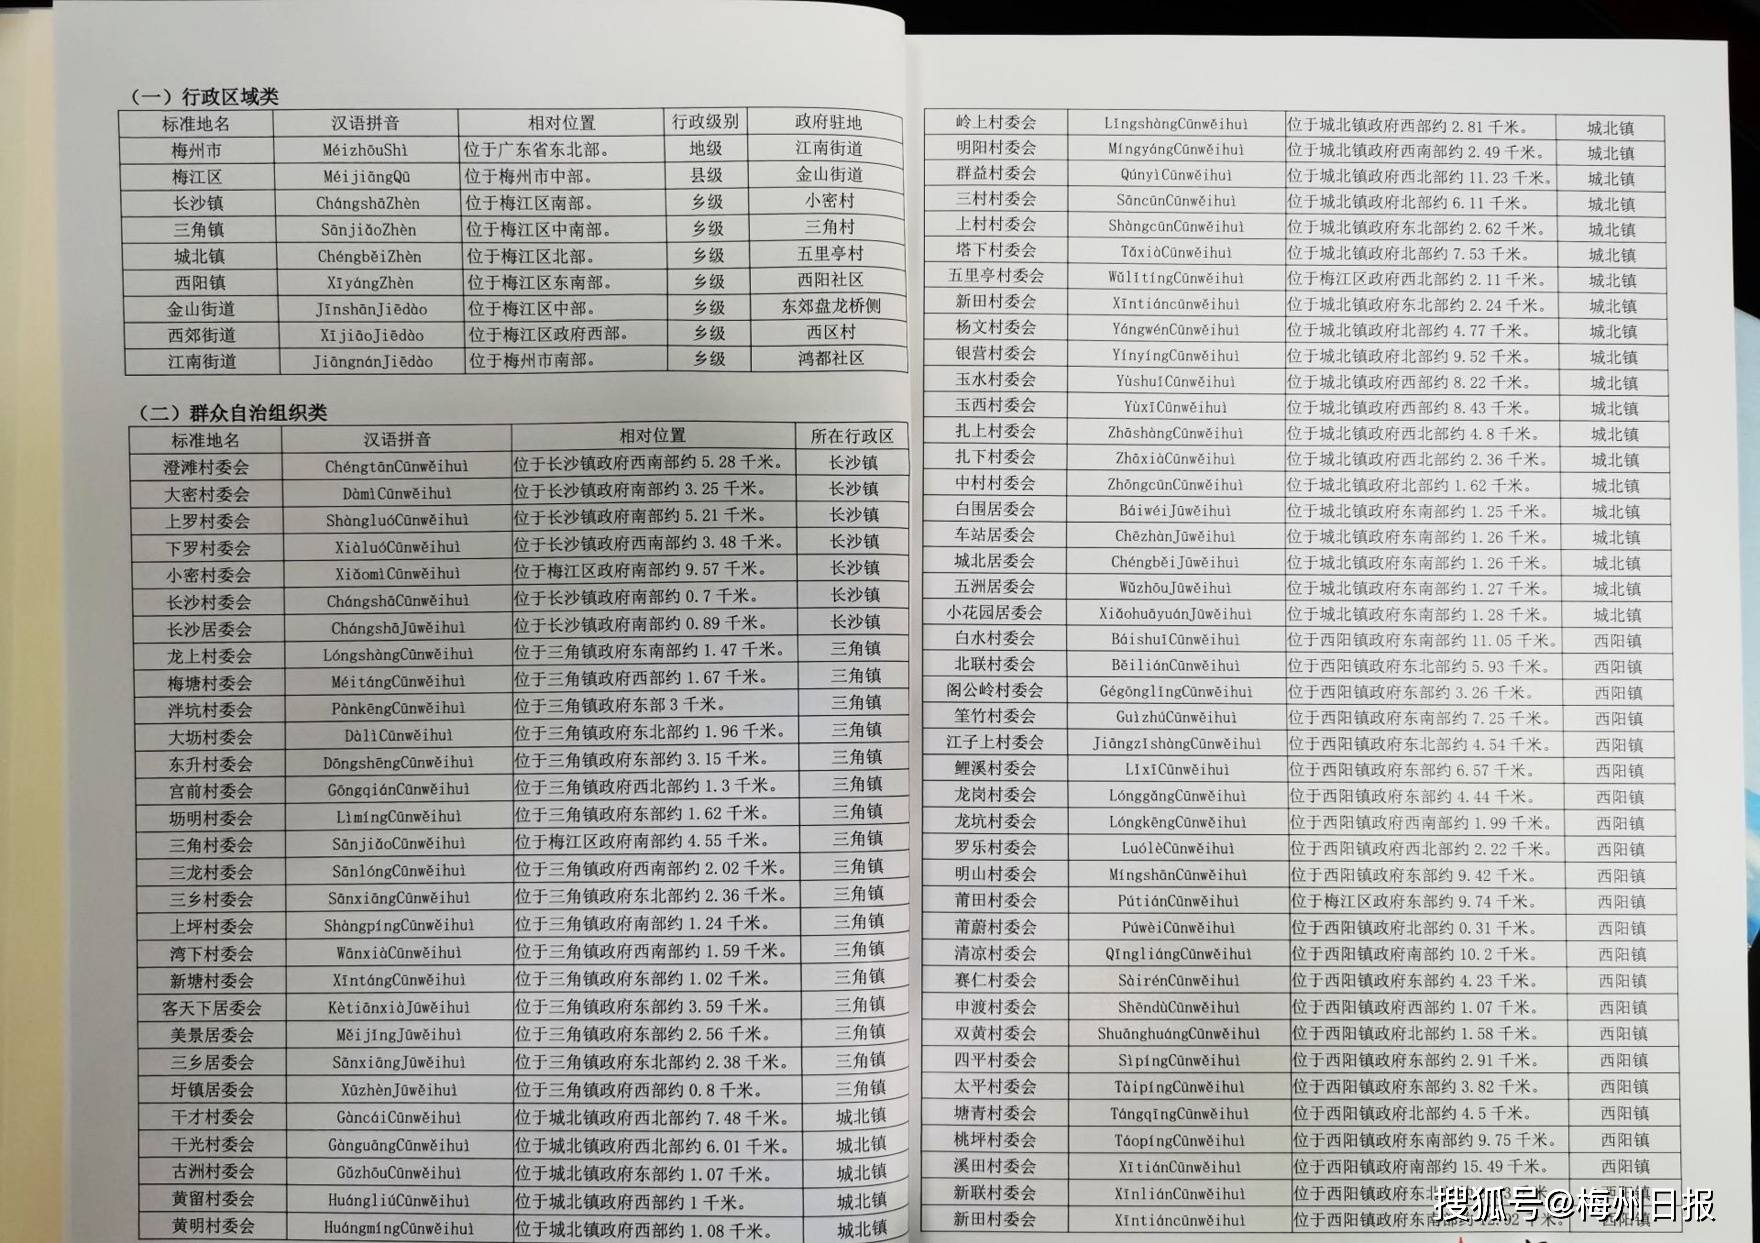 （一）行政区域类
标准地名 汉语拼音 相对位置 行政级别 政府驻地
梅州市 MéizhōuShì 位于广东省东北部。 地级 江南街道
梅江区 MéijiāngQū 位于梅州市中部。 县级 金山街道
长沙镇 ChángshāZhèn 位于梅江区南部。 乡级 小密村
三角镇 SānjiǎoZhèn 位于梅江区中南部。 乡级 三角村
城北镇 ChéngběiZhèn 位于梅江区北部。 乡级 五里亭村
西阳镇 XīyángZhèn 位于梅江区东南部。 乡级 西阳社区
金山街道 JīnshānJiēdào 位于梅江区中部。 乡级 东郊盘龙桥侧
西郊街道 XījiāoJiēdào 位于梅江区政府西部。 乡级 西区村
江南街道 JiāngnánJiēdào 位于梅州市南部。 乡级 鸿都社区
（二）群众自治组织类
标准地名 汉语拼音 相对位置 所在行政区
澄滩村委会 ChéngtānCūnwěihuì 位于长沙镇政府西南部约 5.28 千米。 长沙镇
大密村委会 DàmìCūnwěihuì 位于长沙镇政府南部约 3.25 千米。 长沙镇
上罗村委会 ShàngluóCūnwěihuì 位于长沙镇政府南部约 5.21 千米。 长沙镇
下罗村委会 XiàluóCūnwěihuì 位于长沙镇政府西南部约 3.48 千米。 长沙镇
小密村委会 XiǎomìCūnwěihuì 位于梅江区政府南部约 9.57 千米。 长沙镇
长沙村委会 ChángshāCūnwěihuì 位于长沙镇政府南部约 0.7 千米。 长沙镇
长沙居委会 ChángshāJūwěihuì 位于长沙镇政府南部约 0.89 千米。 长沙镇
龙上村委会 LóngshàngCūnwěihuì 位于三角镇政府东南部约 1.47 千米。 三角镇
梅塘村委会 MéitángCūnwěihuì 位于三角镇政府西部约 1.67 千米。 三角镇
泮坑村委会 PànkēngCūnwěihuì 位于三角镇政府东部 3 千米。 三角镇
大坜村委会 DàlìCūnwěihuì 位于三角镇政府东北部约 1.96 千米。 三角镇
东升村委会 DōngshēngCūnwěihuì 位于三角镇政府东部约 3.15 千米。 三角镇
宫前村委会 GōngqiánCūnwěihuì 位于三角镇政府西北部约 1.3 千米。 三角镇
坜明村委会 LìmíngCūnwěihuì 位于三角镇政府东部约 1.62 千米。 三角镇
三角村委会 SānjiǎoCūnwěihuì 位于梅江区政府南部约 4.55 千米。 三角镇
三龙村委会 SānlóngCūnwěihuì 位于三角镇政府西南部约 2.02 千米。 三角镇
三乡村委会 SānxiāngCūnwěihuì 位于三角镇政府东北部约 2.36 千米。 三角镇
上坪村委会 ShàngpíngCūnwěihuì 位于三角镇政府南部约 1.24 千米。 三角镇
湾下村委会 WānxiàCūnwěihuì 位于三角镇政府西南部约 1.59 千米。 三角镇
新塘村委会 XīntángCūnwěihuì 位于三角镇政府东部约 1.02 千米。 三角镇
客天下居委会 KètiānxiàJūwěihuì 位于三角镇政府东部约 3.59 千米。 三角镇
美景居委会 MěijǐngJūwěihuì 位于三角镇政府东部约 2.56 千米。 三角镇
三乡居委会 SānxiāngJūwěihuì 位于三角镇政府东北部约 2.38 千米。 三角镇
圩镇居委会 XūzhènJūwěihuì 位于三角镇政府西部约 0.8 千米。 三角镇
干才村委会 GàncáiCūnwěihuì 位于城北镇政府西北部约 7.48 千米。 城北镇
干光村委会 GànguāngCūnwěihuì 位于城北镇政府西北部约 6.01 千米。 城北镇
古洲村委会 GǔzhōuCūnwěihuì 位于城北镇政府东部约 1.07 千米。 城北镇
黄留村委会 HuángliúCūnwěihuì 位于城北镇政府西部约 1 千米。 城北镇
黄明村委会 HuángmíngCūnwěihuì 位于城北镇政府西部约 1.08 千米。 城北镇
岭上村委会 LǐngshàngCūnwěihuì 位于城北镇政府西部约 2.81 千米。 城北镇
明阳村委会 MíngyángCūnwěihuì 位于城北镇政府西南部约 2.49 千米。 城北镇
群益村委会 QúnyìCūnwěihuì 位于城北镇政府西北部约 11.23 千米。 城北镇
三村村委会 SāncūnCūnwěihuì 位于城北镇政府北部约 6.11 千米。 城北镇
上村村委会 ShàngcūnCūnwěihuì 位于城北镇政府东北部约 2.62 千米。 城北镇
塔下村委会 TǎxiàCūnwěihuì 位于城北镇政府北部约 7.53 千米。 城北镇
五里亭村委会 WǔlǐtíngCūnwěihuì 位于梅江区政府西北部约 2.11 千米。 城北镇
新田村委会 XīntiáncūnwěihuÌ 位于城北镇政府东北部约 2.24 千米。 城北镇
杨文村委会 YángwénCūnwěihuì 位于城北镇政府北部约 4.77 千米。 城北镇
银营村委会 YínyíngCūnwěihuì 位于城北镇政府北部约 9.52 千米。 城北镇
玉水村委会 YùshuǐCūnwěihuì 位于城北镇政府西部约 8.22 千米。 城北镇
玉西村委会 YùxīCūnwěihuì 位于城北镇政府西部约 8.43 千米。 城北镇
扎上村委会 ZhāshàngCūnwěihuì 位于城北镇政府西北部约 4.8 千米。 城北镇
扎下村委会 ZhāxiàCūnwěihuì 位于城北镇政府西北部约 2.36 千米。 城北镇
中村村委会 ZhōngcūnCūnwěihuì 位于城北镇政府北部约 1.62 千米。 城北镇
白围居委会 BáiwéiJūwěihuì 位于城北镇政府东南部约 1.25 千米。 城北镇
车站居委会 ChēzhànJūwěihuì 位于城北镇政府东南部约 1.26 千米。 城北镇
城北居委会 ChéngběiJūwěihuì 位于城北镇政府东南部约 1.26 千米。 城北镇
五洲居委会 WǔzhōuJūwěihuì 位于城北镇政府东南部约 1.27 千米。 城北镇
小花园居委会 XiǎohuāyuánJūwěihuì 位于城北镇政府东南部约 1.28 千米。 城北镇
白水村委会 BáishuǐCūnwěihuì 位于西阳镇政府东南部约 11.05 千米。 西阳镇
北联村委会 BěiliánCūnwěihuì 位于西阳镇政府东北部约 5.93 千米。 西阳镇
阁公岭村委会 GégōnglǐngCūnwěihuì 位于西阳镇政府东部约 3.26 千米。 西阳镇
筀竹村委会 GuìzhúCūnwěihuì 位于西阳镇政府东南部约 7.25 千米。 西阳镇
江子上村委会 JiāngzǐshàngCūnwěihuì 位于西阳镇政府东北部约 4.54 千米。 西阳镇
鲤溪村委会 LǐxīCūnwěihuì 位于西阳镇政府东部约 6.57 千米。 西阳镇
龙岗村委会 LónggǎngCūnwěihuì 位于西阳镇政府东部约 4.44 千米。 西阳镇
龙坑村委会 LóngkēngCūnwěihuì 位于西阳镇政府西南部约 1.99 千米。 西阳镇
罗乐村委会 LuólèCūnwěihuì 位于西阳镇政府西北部约 2.22 千米。 西阳镇
明山村委会 MíngshānCūnwěihuì 位于西阳镇政府东部约 9.42 千米。 西阳镇
莆田村委会 PútiánCūnwěihuì 位于梅江区政府东部约 9.74 千米。 西阳镇
莆蔚村委会 PúwèiCūnwěihuì 位于西阳镇政府北部约 0.31 千米。 西阳镇
清凉村委会 QīngliángCūnwěihuì 位于西阳镇政府南部约 10.2 千米。 西阳镇
赛仁村委会 SàirénCūnwěihuì 位于西阳镇政府东部约 4.23 千米。 西阳镇
申渡村委会 ShēndùCūnwěihuì 位于西阳镇政府西部约 1.07 千米。 西阳镇
双黄村委会 ShuānghuángCūnwěihuì 位于西阳镇政府北部约 1.58 千米。 西阳镇
四平村委会 SìpíngCūnwěihuì 位于西阳镇政府东部约 2.91 千米。 西阳镇
太平村委会 TàipíngCūnwěihuì 位于西阳镇政府东部约 3.82 千米。 西阳镇
塘青村委会 TángqīngCūnwěihuì 位于西阳镇政府北部约 4.5 千米。 西阳镇
桃坪村委会 TáopíngCūnwěihuì 位于西阳镇政府东南部约 9.75 千米。 西阳镇
溪田村委会 XītiánCūnwěihuì 位于西阳镇政府南部约 15.49 千米。 西阳镇
新联村委会 XīnliánCūnwěihuì 位于西阳镇政府东
新田村委会 Xīntiáncūnwěihuì 位于西阳镇政府东南部约
搜狐号@梅州日报